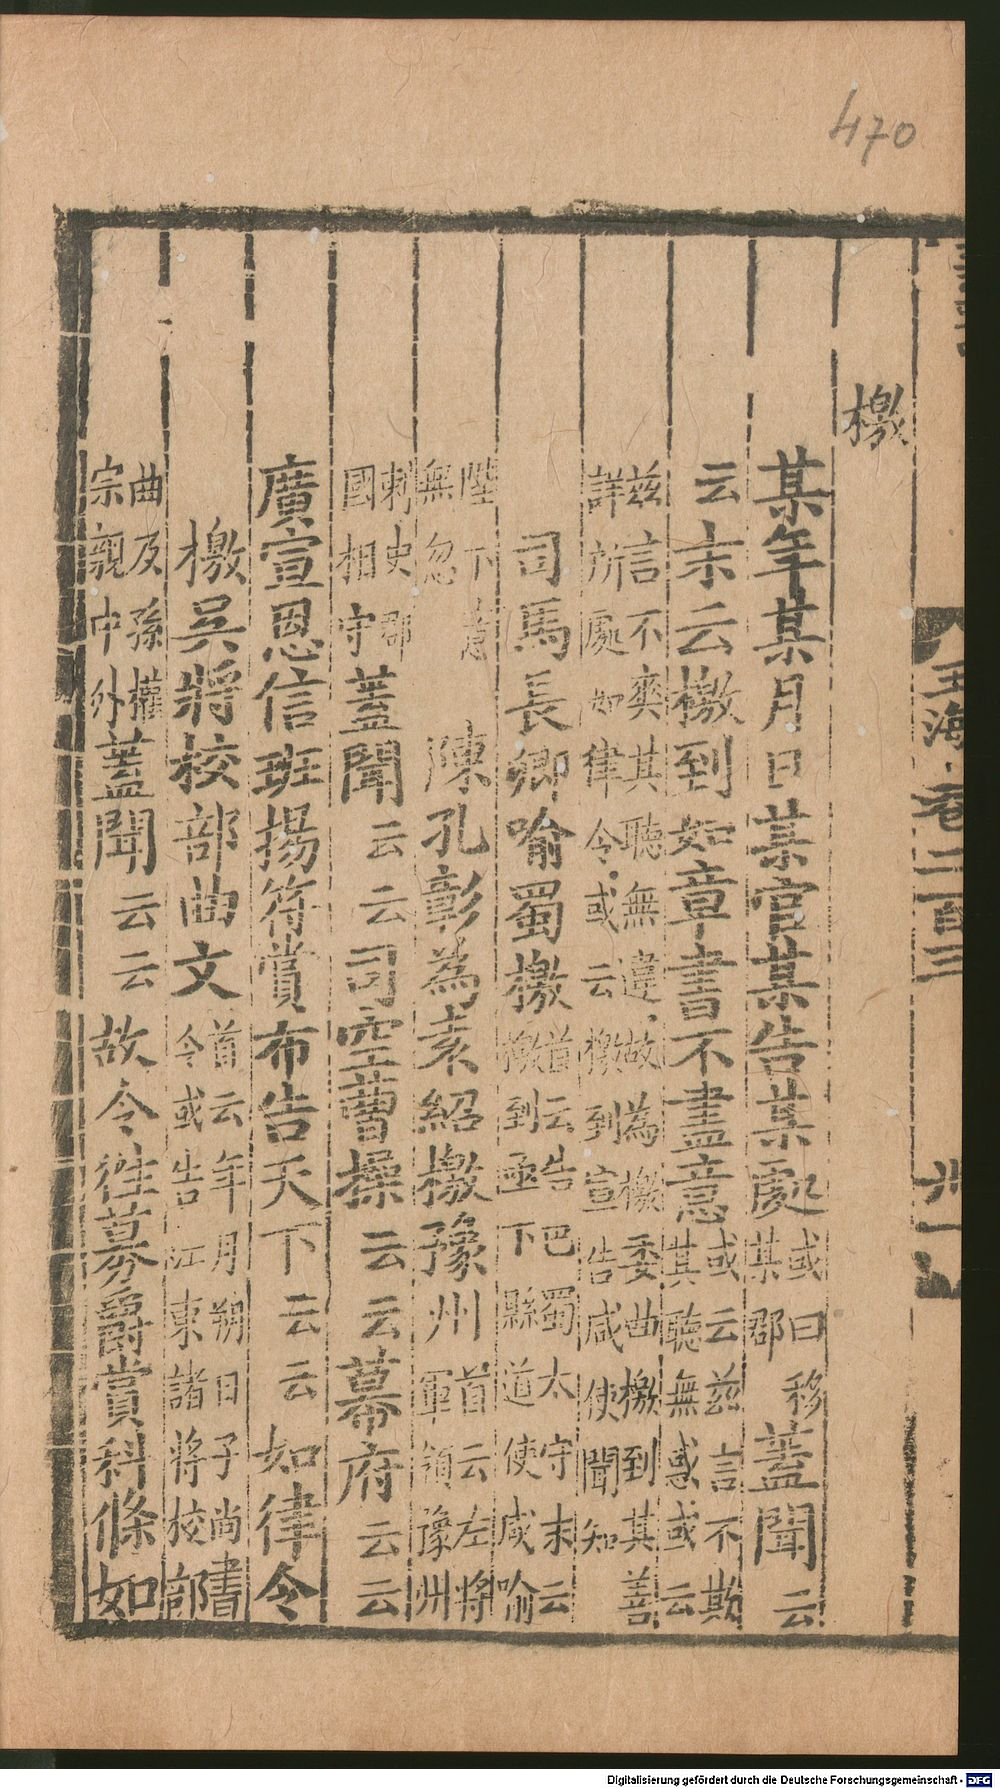 470
玉海卷二百三
檄
某年某月日某官某告某處或曰移某郡蓋聞云
云末云檄到如章書不盡意或云茲言不欺其聽無惑或云
茲言不爽其聽無違故為檄委曲檄到其善詳所處如律令或云檄到宣告咸使聞知
司馬長卿喻蜀檄首云告巴蜀太守末云檄到亟下縣道使咸喻
陛下意無忽陳孔彰為袁紹檄豫州首云左將軍領豫州
刺史郡國相守蓋聞云云司空曹操云云幕府云云
廣宣恩信班揚符賞布告天下云云如律令
檄吳將校部曲文首云年月朔日子尚書令或告江東諸將校部
曲及孫權宗親中外蓋聞云云故令往募爵賞科條如
Digitalisierung gefördert durch die Deutsche Forschungsgemeinschaft - DFG